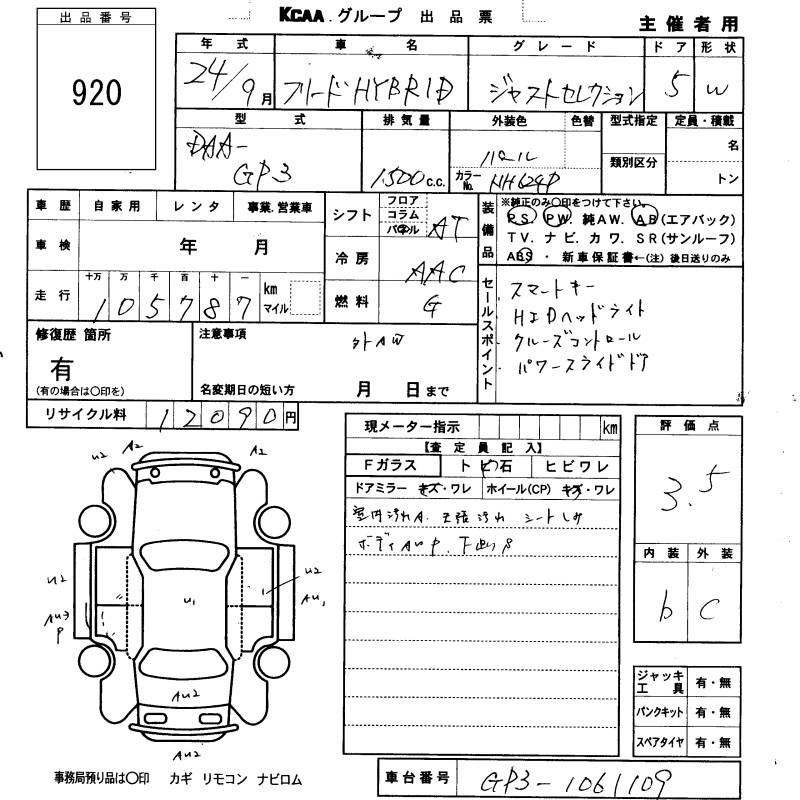 KCAA.グループ 出品票
主催者用
出品番号
920
年式 車名 グレード ドア 形状
24/9月 フリードHYBRID ジャストセレクション 5 W
型式 排気量 外装色 色替 型式指定 定員・積載
DAA-GP3 1500c.c. パール 名
カラーNo. NH624P 類別区分 トン
車歴 自家用 レンタ 事業.営業車
車検 年 月
走行 十万 万 千 百 十 一 km マイル
105787
シフト フロア コラム パネル AT
冷房 AAC
燃料 G
装備品 ※純正のみ○印をつけて下さい。
PS. PW. 純AW. AB(エアバック)
TV. ナビ. カワ. SR(サンルーフ)
ABS ・ 新車保証書←(注) 後日送りのみ
セールスポイント
スマートキー
HIDヘッドライト
クルーズコントロール
パワースライドドア
修復歴 箇所
有
(有の場合は○印を)
注意事項
外AW
名変期日の短い方 月 日まで
リサイクル料 12090円
現メーター指示 km
【査定員記入】
Fガラス トビ石 ヒビワレ
ドアミラー キズ・ワレ ホイール(CP) キズ・ワレ
室内汚れA. 天張汚れ シートしみ
評価点
3.5
内装 外装
b C
ジャッキ工具 有・無
パンクキット 有・無
スペアタイヤ 有・無
U2 A2 A2
U2 U2
AU3 P U1 AU1
AU2
AU2
事務局預り品は○印 カギ リモコン ナビロム
車台番号 GP3-1061109